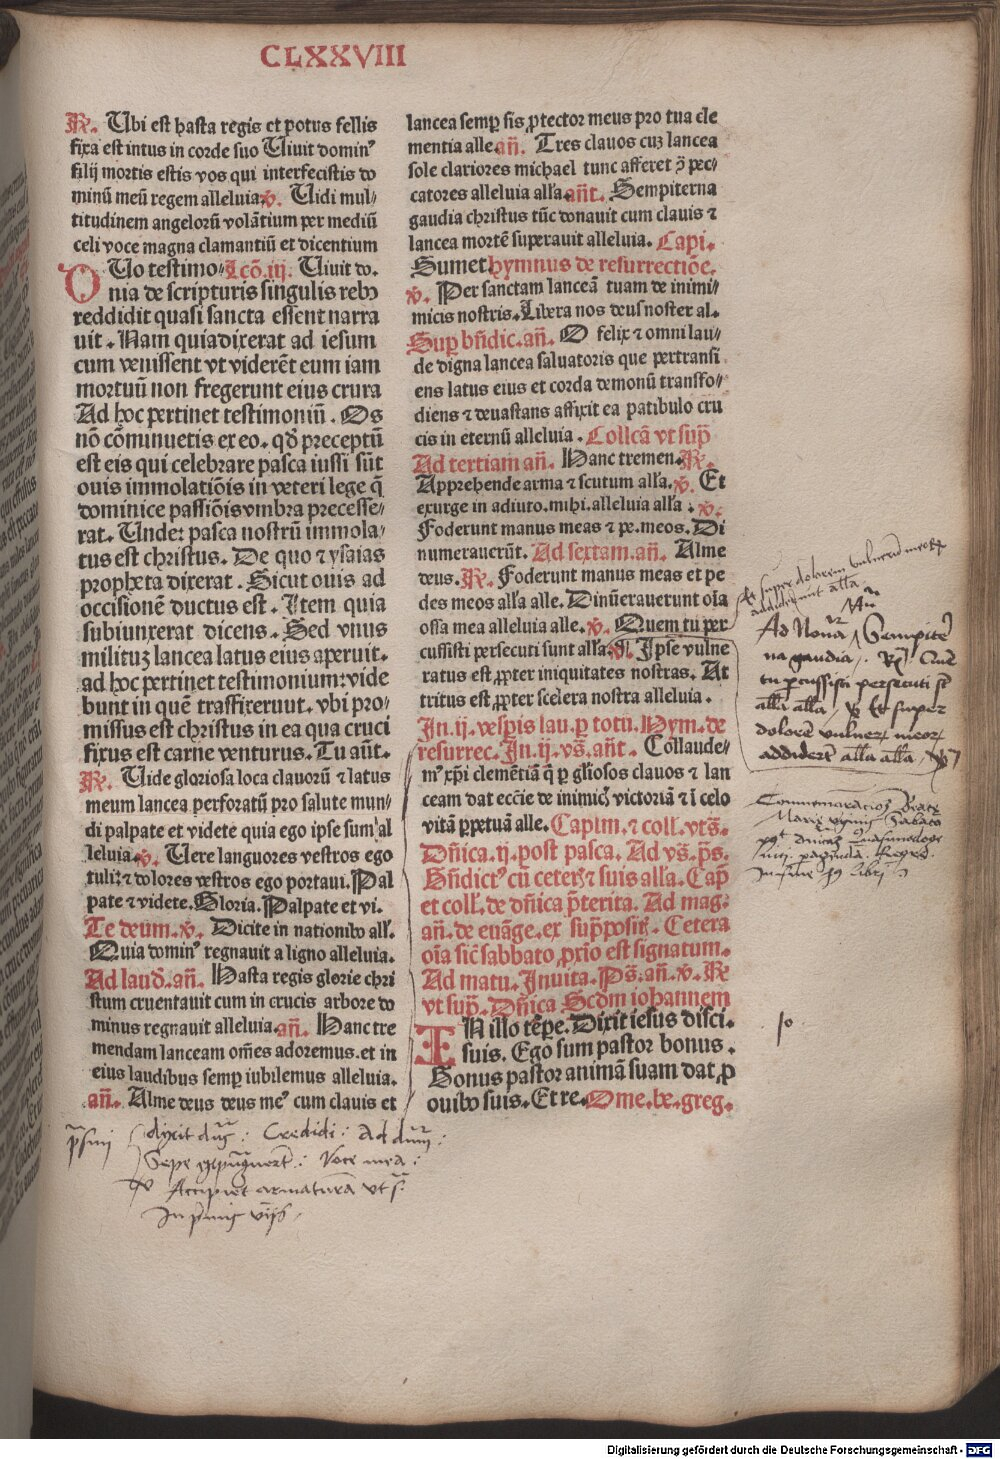 CLXXVIII
R. Ubi est hasta regis et potus fellis
fixa est intus in corde suo Uiuit dominꝰ
filij mortis estis vos qui interfecistis do
minū meū regem alleluia. v̄. Uidi mul⸗
titudinem angelorū volātium per mediū
celi voce magna clamantiū et dicentium
QUo testimo⸗ Lcō. iij. Uiuit do.
nia de scripturis singulis rebꝰ
reddidit quasi sancta essent narra
uit. Nam quia dixerat ad iesum
cum venissent vt viderēt eum iam
mortuū non fregerunt eius crura
Ad hoc pertinet testimoniū. Os
nō cōminuetis ex eo. qđ preceptū
est eis qui celebrare pasca iussi sūt
ouis immolatiōis in veteri lege q̄
dominice passiōis vmbra precesse⸗
rat. Unde: pasca nostrū immola⸗
tus est christus. De quo ⁊ ysaias
propheta dixerat. Sicut ouis ad
occisionē ductus est. Item quia
subiunxerat dicens. Sed vnus
milituꝫ lancea latus eius aperuit.
ad hoc pertinet testimonium: vide
bunt in quē transfixerunt. vbi pro⸗
missus est christus in ea qua cruci
fixus est carne venturus. Tu aūt.
R. Uide gloriosa loca clauorū ⁊ latus
meum lancea perforatū pro salute mun⸗
di palpate et videte quia ego ipse sum al
leluia. v̄. Uere languores vestros ego
tuli: ⁊ dolores vestros ego portaui. Pal
pate ⁊ videte. Gloria. Palpate et vi.
Te deum. v̄. Dicite in nationibꝰ all.
Quia dominꝰ regnauit a ligno alleluia.
Ad laud. añ. Hasta regis glorie chri
stum cruentauit cum in crucis arbore do
minus regnauit alleluia. añ. Hanc tre
mendam lanceam om̄es adoremus. et in
eius laudibus semꝑ iubilemus alleluia.
añ. Alme deus deus meꝰ cum clauis et
lancea semꝑ sis ꝓtector meus pro tua cle
mentia alle. añ. Tres clauos cuꝫ lancea
sole clariores michael tunc afferet ꝯ̄ pec⸗
catores alleluia alľa. añt. Sempiterna
gaudia christus tūc donauit cum clauis ⁊
lancea mortē superauit alleluia. Capi.
Sumet hymnus de resurrectiōe.
v̄. Per sanctam lanceā tuam de inimi⸗
micis nostris. Libera nos deus noster al.
Suꝑ bn̄dic. añ. O felix ⁊ omni lau⸗
de digna lancea saluatoris que pertransi
ens latus eius et corda demonū transfo⸗
diens ⁊ deuastans affixit ea patibulo cru
cis in eternū alleluia. Collcā vt suꝑ
Ad tertiam añ. Hanc tremen. R.
Apprehende arma ⁊ scutum alľa. v̄. Et
exurge in adiuto. mihi. alleluia alľa. v̄.
Foderunt manus meas ⁊ pe. meos. Di
numerauerūt. Ad sextam. añ. Alme
deus. R. Foderunt manus meas et pe
des meos alľa alle. Dinūerauerunt oīa
ossa mea alleluia alle. v̄. Quem tu per
cussisti persecuti sunt alľa. Ipse vulne
ratus est ꝓpter iniquitates nostras. At
tritus est ꝓpter scelera nostra alleluia.
In. ij. vesꝑis lau. ꝑ totū. Hym. de
resurrec. In. ij. vs̄. añt. Collaude⸗
mꝰ xp̄i clemētiā q̄ ꝑ gľiosos clauos ⁊ lan
ceam dat ecc̄ie de inimicꝭ victoriā ⁊ ī celo
vitā ꝑpetuā alle. Caplm. ⁊ coll. vts̄.
Dn̄ica. ij. post pasca. Ad vs̄. ps̄.
Bn̄dictꝰ cū ceterꝭ ⁊ suis alľa. Cap̄
et coll. de dn̄ica p̄terita. Ad mag⸗
añ. de euāge. ex suꝑpositꝭ. Cetera
oīa sic̄ sabbato ꝓxīo est signatum.
Ad matu. Inuita. Ps̄. añ. v̄. R
vt suꝑ. Dn̄ica Scđm iohannem
IN illo tēꝑe. Dixit iesus disci.
suis. Ego sum pastor bonus.
Bonus pastor animā suam dat ꝓ
ouibꝰ suis. Et re. Ome. be. greg.
et super dolorem vulnerum meorꝝ
addiderunt alľa
Ad Nonā Sempite
na gaudia. R. Quē
tu percussisti persecuti st̄
alľa alľa v̄ et super
dolorē vulnerꝝ meorꝝ
addiderūt alľa alľa
Commemoracioꝫ Beate
Marie virginis Sabato
In fine hꝰ libri
dixit dn̄s : Credidi : Ad dn̄m :
Sepe expugnauerūt : Voce mea :
Accipiet armaturā vt s̄
In primis vesꝑis